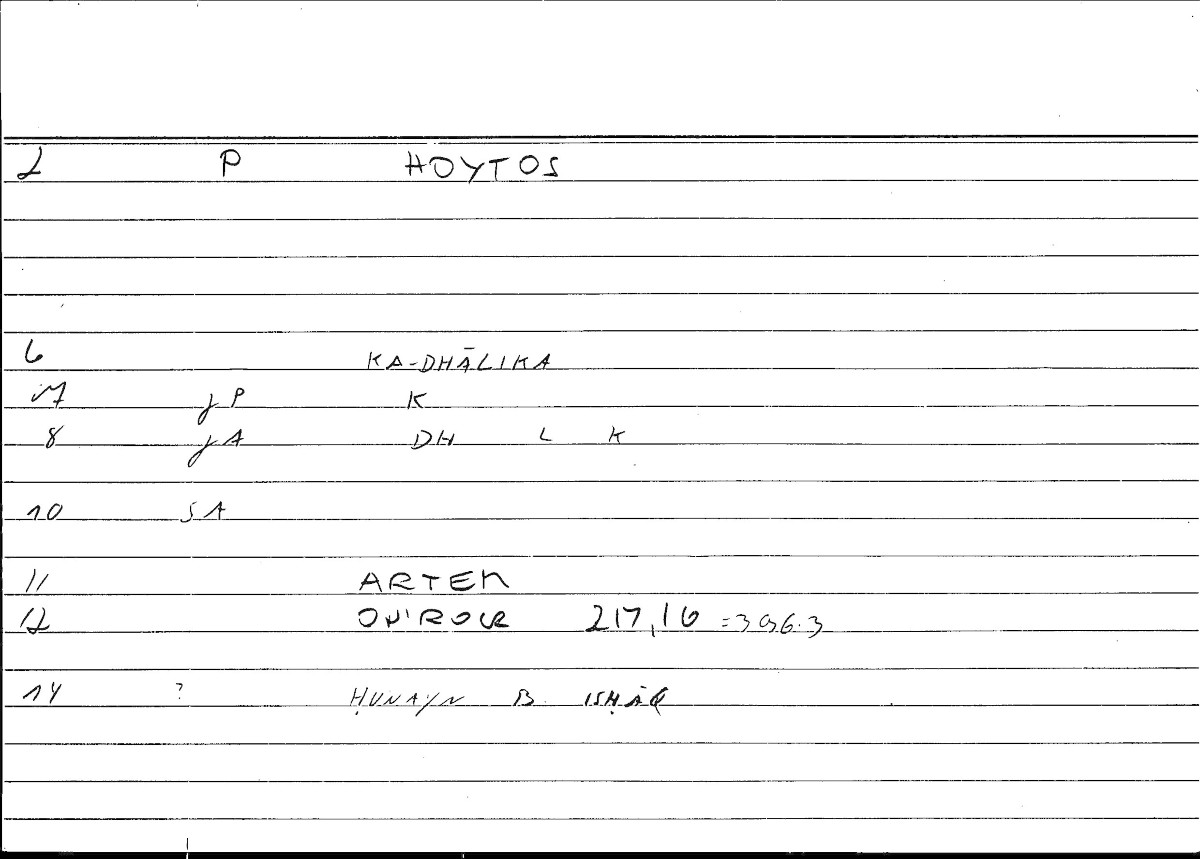 2 P HOYTOS
6 KA-DHĀLIKA
7 jP K
8 jA DH L K
10 SA
11 ARTEM
12 ON'ROCR 217,16 =396.3
14 ? ḤUNAYN B ISḤĀQ